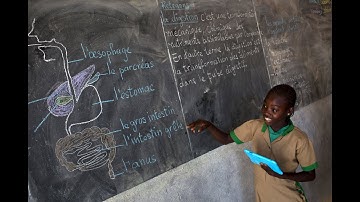 l'œsophage
le pancréas
l'estomac
le gros intestin
l'intestin grêle
l'anus
la digestion C'est une transformation
mécanique, chimique des
En d'autre terme la digestion
la transformation des aliments
dans le tube digestif.